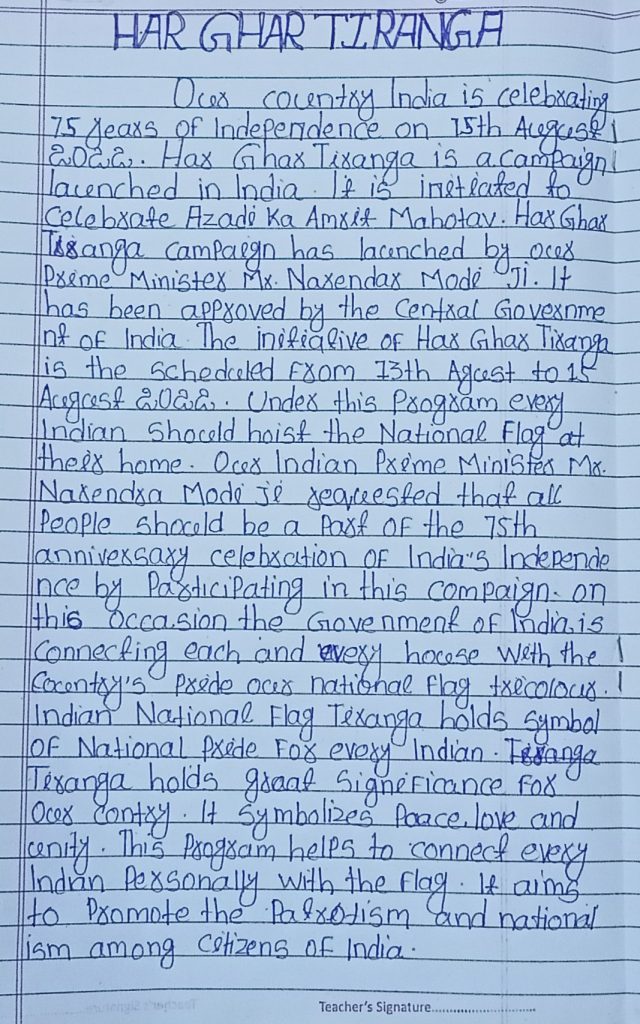 HAR GHAR TIRANGA
Our country India is celebrating
75 years of Independence on 15th August
2022. Har Ghar Tiranga is a campaign
launched in India. It is initiated to
Celebrate Azadi Ka Amrit Mahotav. Har Ghar
Tiranga campaign has launched by our
Prime Minister Mr. Narendar Modi Ji. It
has been approved by the Central Governme
nt of India. The initiative of Har Ghar Tiranga
is the scheduled from 13th Agust to 15
August 2022. Under this Program every
Indian should hoist the National Flag at
their home. Our Indian Prime Minister Mr.
Narendra Modi Ji requested that all
People should be a Part of the 75th
anniversary celebration of India's Independe
nce by Participating in this compaign. on
this occasion the Govenment of India is
Connecting each and every house with the
Country's Pride our national flag tricolour.
Indian National Flag Tiranga holds symbol
of National Pride for every Indian. Tiranga
Tiranga holds graat significance for
Our contry. It symbolizes Paace, love and
unity. This Program helps to connect every
Indian Personally with the flag. It aims
to Promote the Patrotism and national
ism among citizens of India.
Teacher's Signature..............................